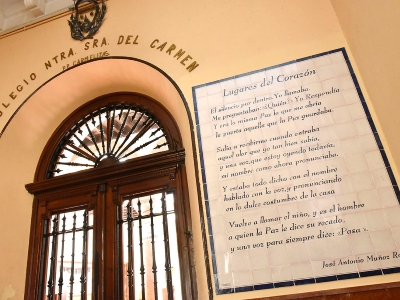 COLEGIO NTRA. SRA. DEL CARMEN
PP. CARMELITAS
Lugares del Corazón
El silencio por dentro. Yo llamaba.
Me preguntaban: «¿Quién?» Yo Respondía
Y era lo mismo Paz la que me abría
la puerta aquella que la Paz guardaba.
Salía a recibirme cuando entraba
aquel olor que yo tan bien sabía,
y una voz, que estoy oyendo todavía,
mi nombre como ahora pronunciaba.
Y estaba todo dicho con el nombre
hablado con la voz, y pronunciando
en la dulce costumbre de la casa
Vuelve a llamar el niño, y es el hombre
a quien la Paz le dice su recado,
y una voz para siempre dice: «Pasa».
José Antonio Muñoz